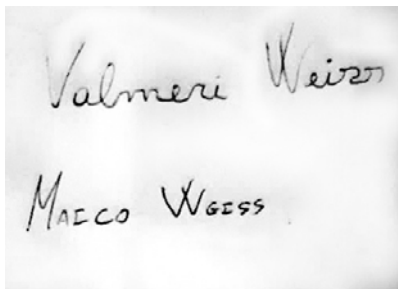 Valmeri Weiss
Maico Weiss